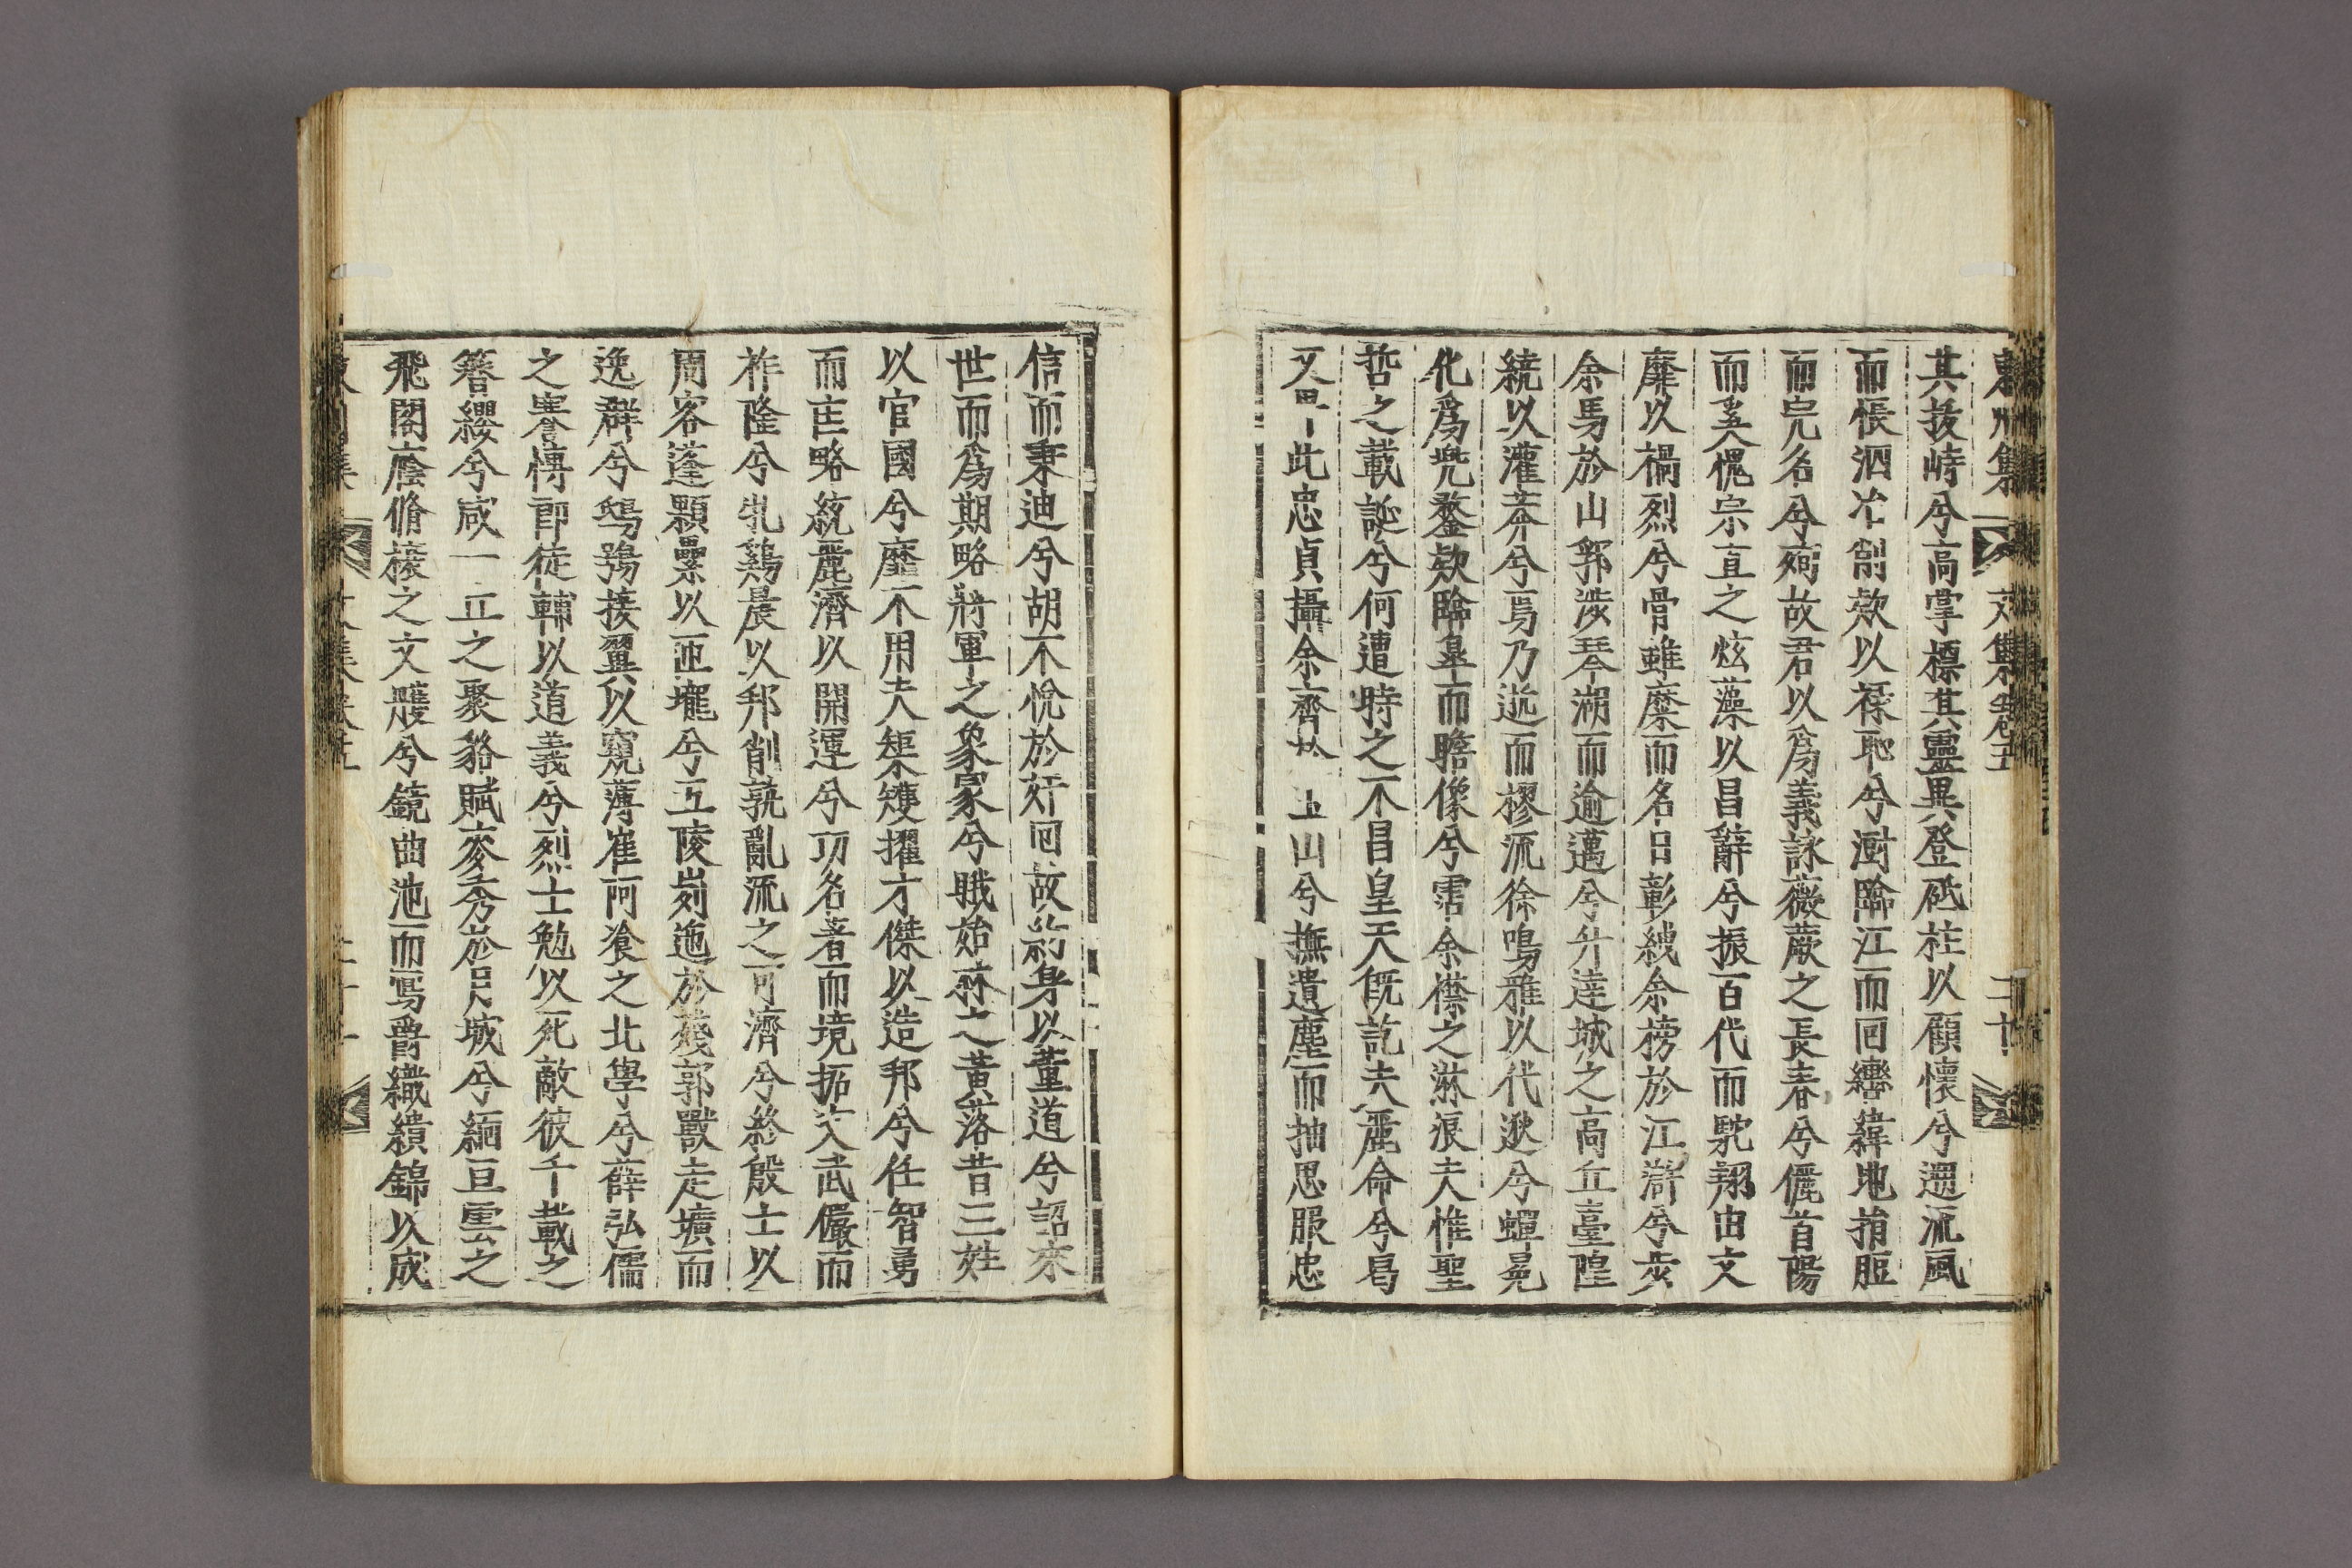 東州集 文集卷五 二十
其拔峙兮高掌標其靈異登砥柱以顧懷兮遡流風
而悵泗冶剖欬以祿耻兮澍臨江而回轡緯地捐脰
而完名兮殉故君以爲義詠薇蕨之長春兮儷首陽
而羡愧宗直之炫藻以昌辭兮振百代而馳翔由文
靡以禍烈兮骨雖糜而名日彰紲余榜於江滸兮發
余馬於山郭涉琴湖而逾邁兮升達城之高丘臺隍
繞以灌莽兮焉乃逝而樛流徐鳴雅以代遬兮蟬冕
化爲兜鍪欸臨皐而瞻像兮霑余襟之淋浪夫惟聖
哲之載誕兮何遭時之不昌皇天旣訖夫麗命兮曷
又 此忠貞攝余齊 山兮撫遺塵而抽思服忠
信而秉迪兮胡不悅於奸回故 身以董道兮詔來
世而爲期略將軍之象冢兮戝始 之黃落昔三姓
以官國兮靡不用夫榘矱擢才傑以造邦兮任智勇
而庄略統麗濟以開運兮功名著而境拓 武儼而
祚隆兮牝鷄晨以邦削孰亂流之可濟兮終殷士以
周客蓬顆纍以匝壠兮互陵剡迤於殘郭獸走壙而
逸群兮鴟鴞接翼以窺薄崔阿飡之北學兮薛弘儒
之謇愽郎徒輔以道義兮烈士勉以死敵彼千載之
簪纓兮咸一丘之聚貉賦麥秀於月城兮緬亘雲之
飛閣蔭脩棱之文䕶兮鏡曲池而寫爵織繢錦以成